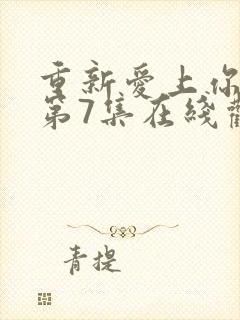 重新愛上你
第7集在綫
青提